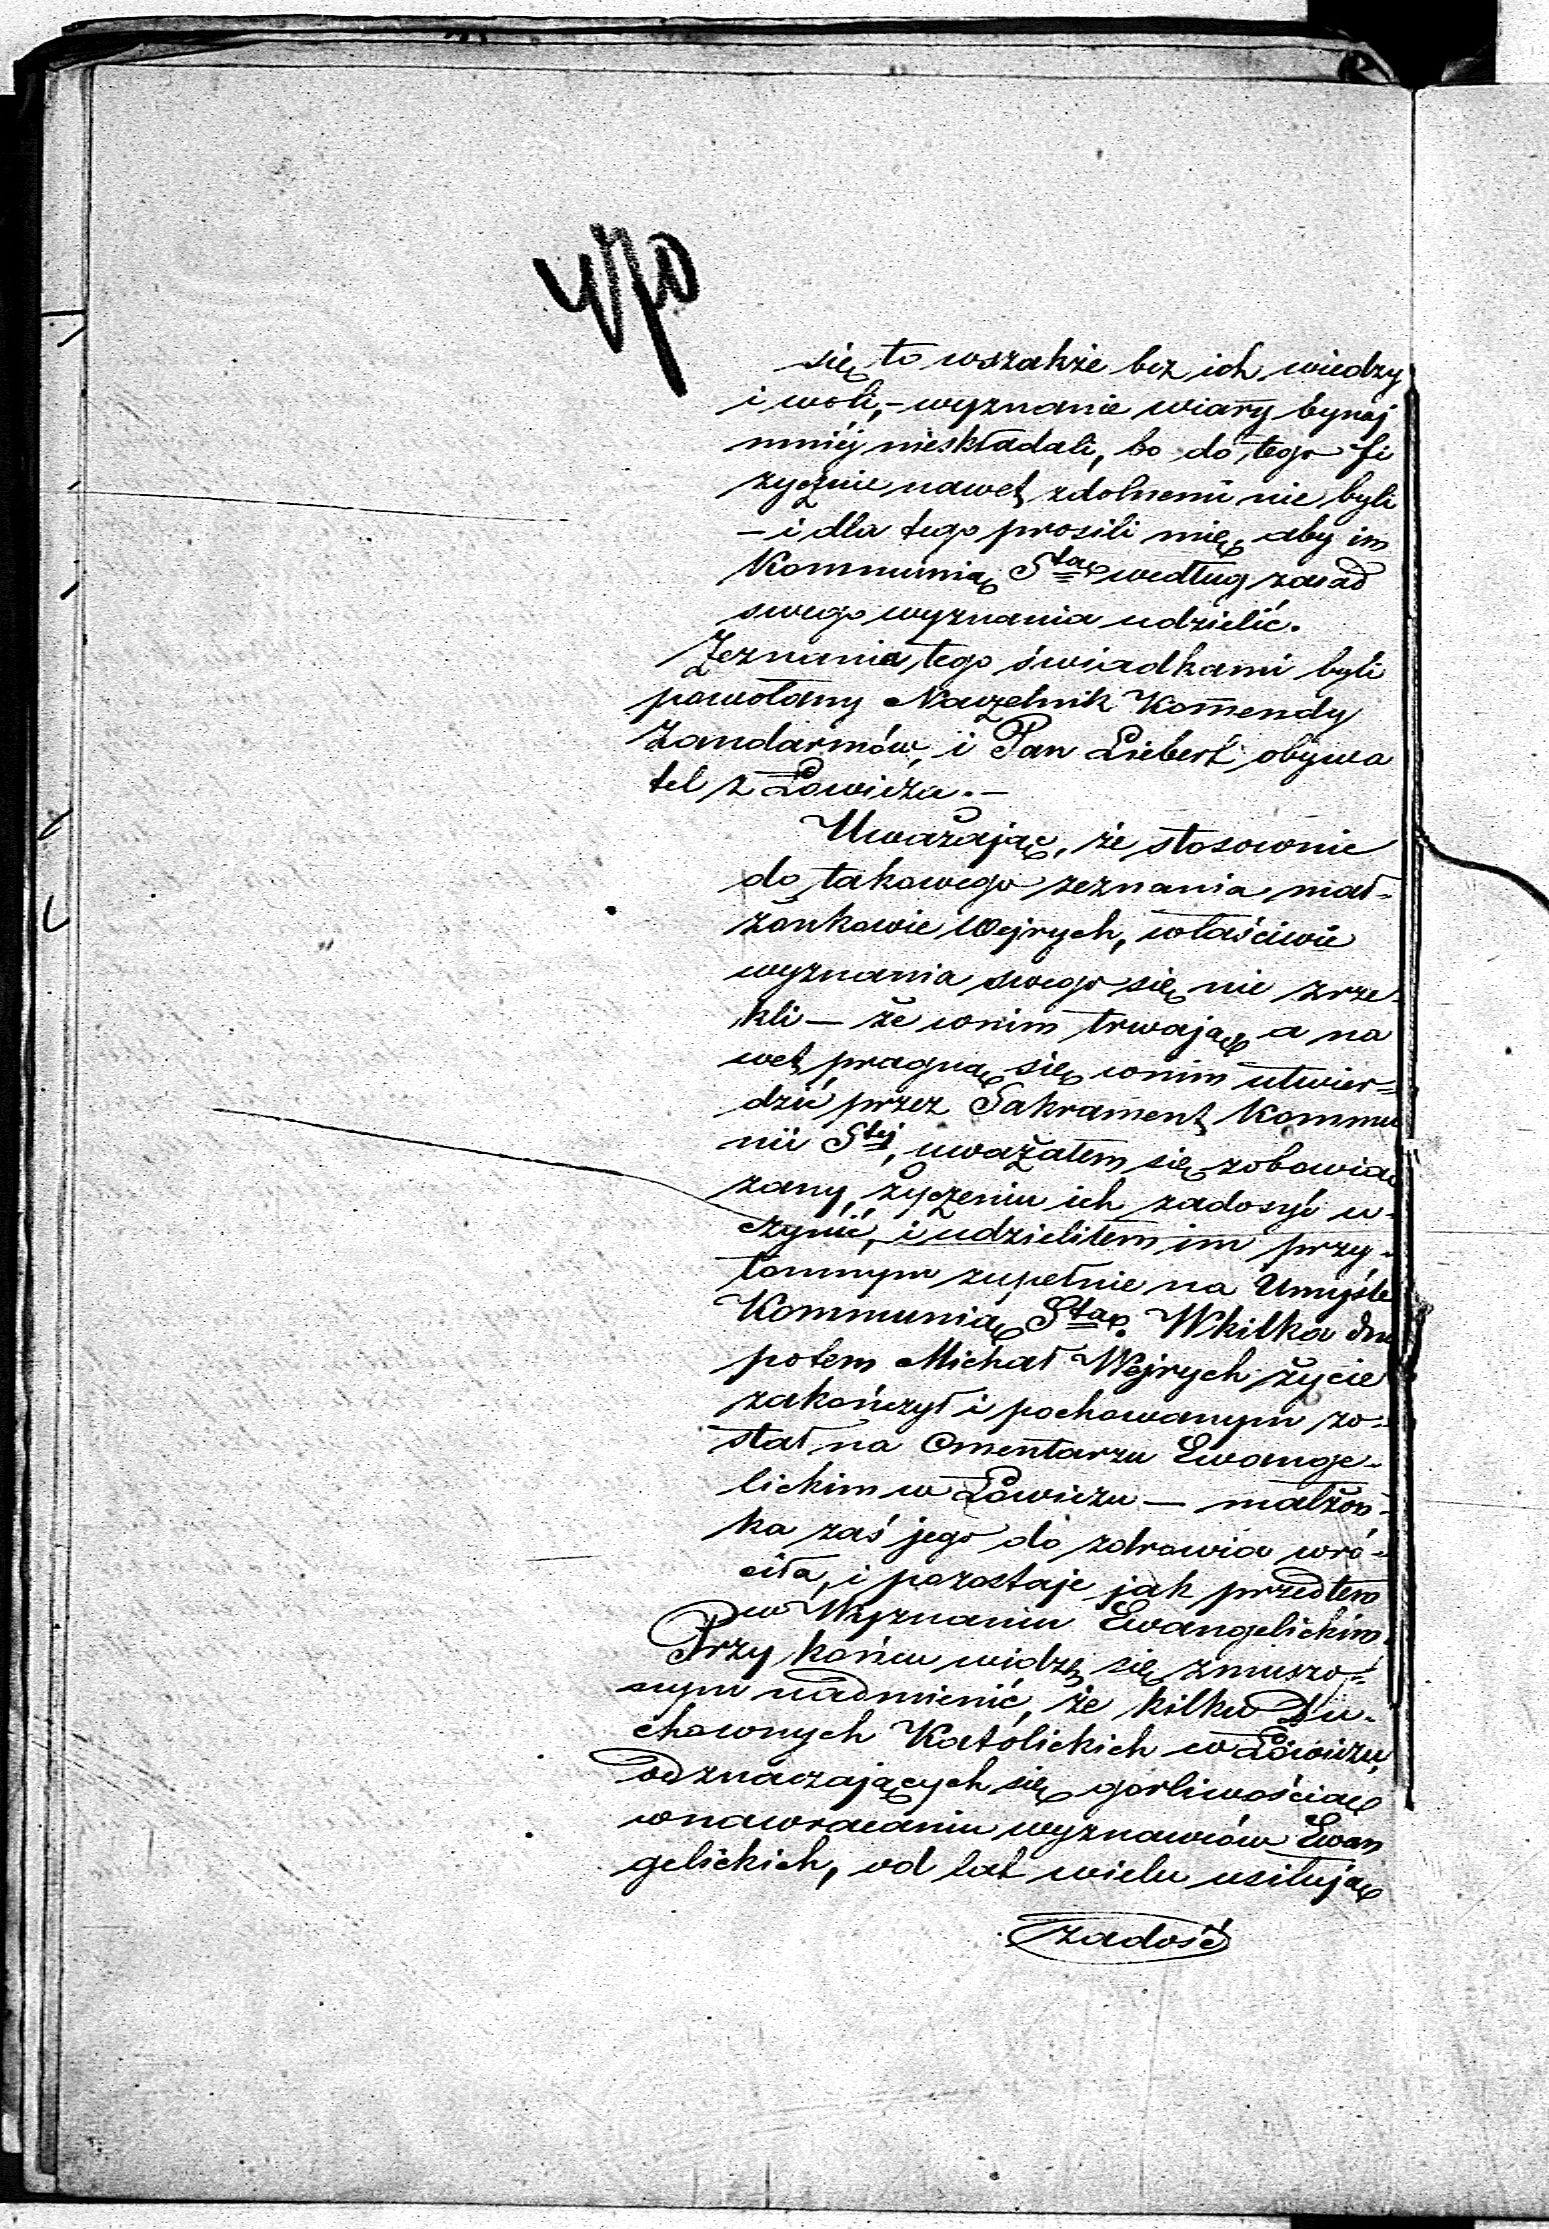 470
się to wszakże bez ich wiedzy
i woli, – wyznanie wiary bynaj
mniéj nieskładali, bo do tego fi
zycznie nawet zdolnemi nie byli
– i dla tego prosili mię, aby im
Kommunią Stą według zasad
swego wyznania udzielić.
Zeznania tego świadkami byli
powołany Naczelnik Komendy
Żandarmów, i Pan Liebert obywa
tel z Łowicza. –
Uważając, że stosownie
do takowego zeznania mał-
żonkowie Wejrych, właściwie
wyznania swego się nie zrze-
kli – że wnim trwają, a na
wet pragną się wnim utwier-
dzić przez Sakrament Kommu
nii Stéj, uważałem się zobowią
zany życzeniu ich zadosyć u-
czynić, i udzieliłem im przy-
tomnym zupełnie na Umyśle
Kommunią Stą. Wkilka dni
potem Michał Wejrych życie
zakończył i pochowanym zo-
stał na Cmentarzu Ewange-
lickim w Łowiczu – małżon-
ka zaś jego do zdrowia wró-
ciła, i pozostaje jak przedtem
w Wyznaniu Ewangelickim.
Przy końcu widzę się zmuszo-
nym nadmienić, że kilku Du-
chownych Katolickich w Łowiczu,
odznaczających się gorliwością
wnawracaniu wyznawców Ewan
gelickich, od lat wielu usiłują
zadość